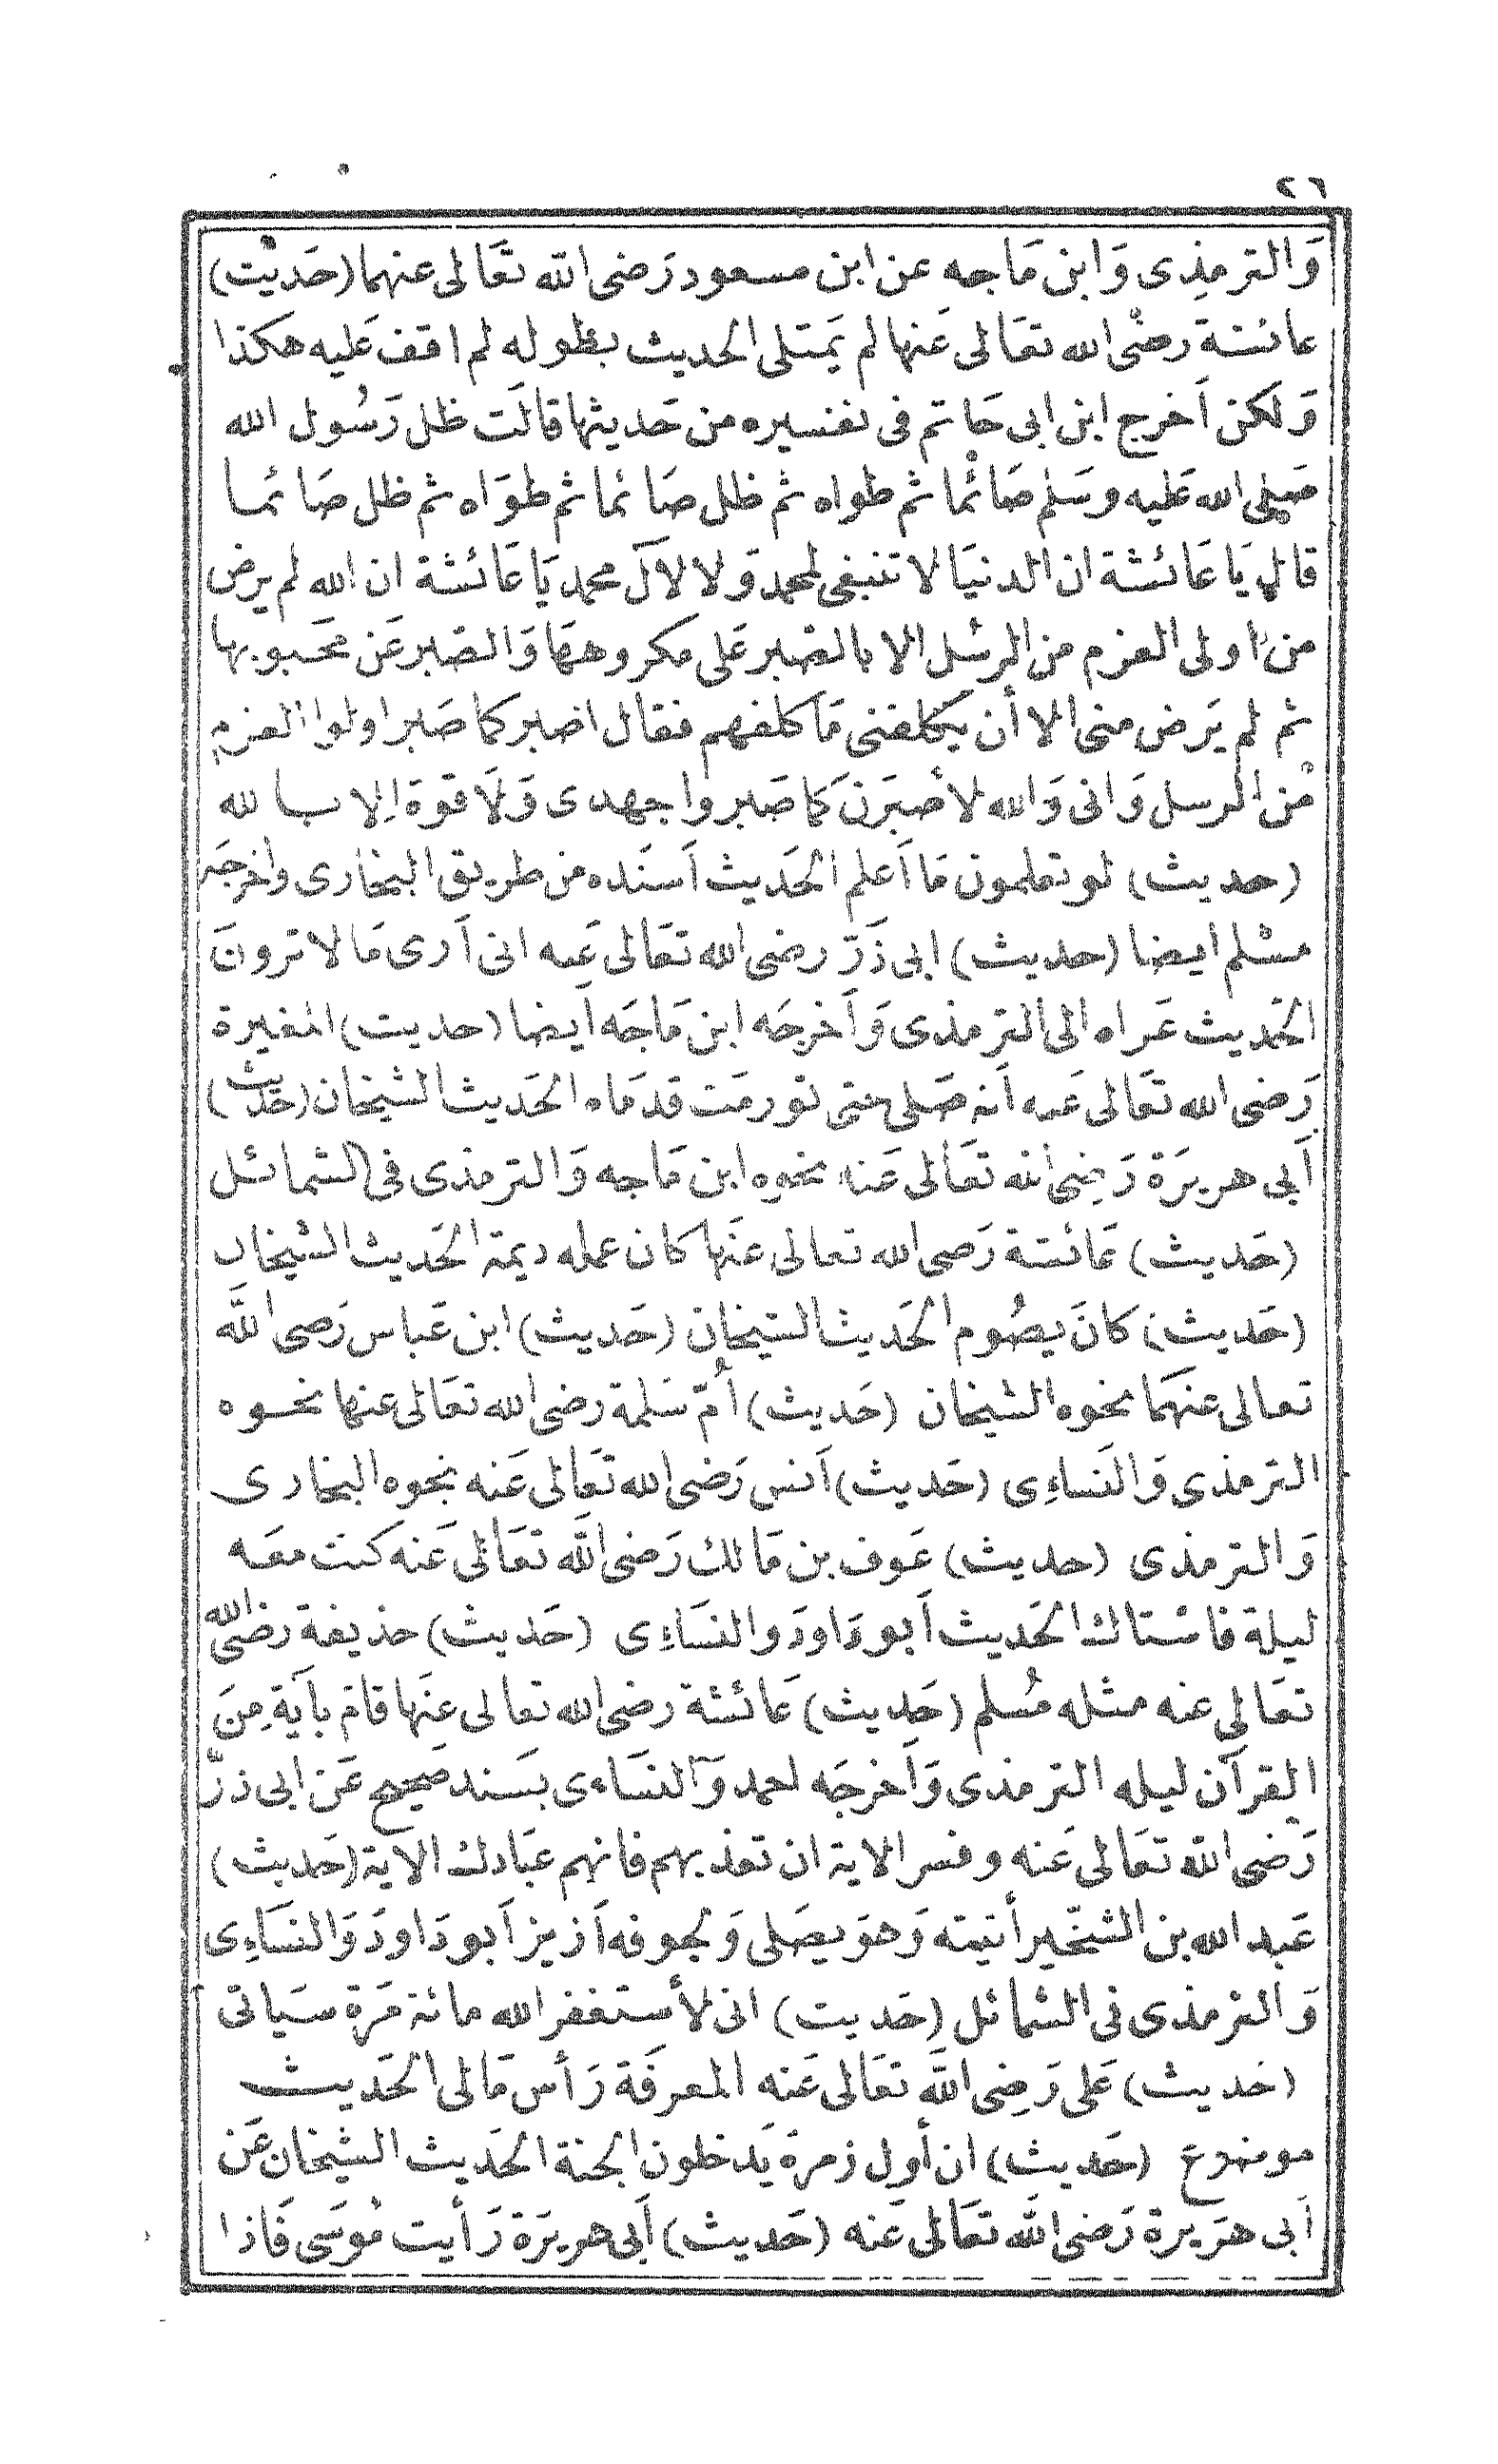 ٢٦
وَالترمذِى وَابن مَاجه عن ابن مسعود رَضى الله تعَالى عنهما (حَديث)
عائشة رضى الله تعَالى عَنها لم يَمتلى الحديث بطوله لم اقف عَليه هكذا
وَلكن أخرج ابن ابى حَاتم فى تفسيره من حَديثها قالَت ظل رَسُول الله
صَلى الله عَليه وسَلم صَائما ثم طواه ثم ظل صَائما ثم طوَاه ثم ظل صَائما
قال يَا عَائشة ان الدنيَا لا تنبغى لمحمد وَلا لآل محمد يَا عَائشة ان الله لم يرض
من اولى العزم من الرسُل الا بالصَبر عَلى مكروههَا وَالصَبر عَن محَبوبها
ثم لم يَرض منى الا أن يكلفنى مَا كلفهم فقال اصبر كما صَبر اولوا العزم
من الرسل وَانى وَالله لأصْبَرن كما صَبروا جهدى وَلَا قوة الا بالله
(حديث) لو تعلمون مَا أعلم الحَديث أسنَده من طريق البخارى واخرجَه
مسْلم ايضا (حديث) ابى ذَرّ رضى الله تعَالى عَنه انى أرى مَا لا ترونَ
الحَديث عَزاه الى الترمذى وَأخرجَه ابن مَاجَه أيضا (حديث) المغيرة
رَضى الله تعَالى عَنه أنه صَلى حتى تورمَت قدمَاه الحَديث الشيخان (حَديث)
أبى هريرَة رَضى الله تعَالى عَنه نحوه ابن مَاجه وَالترمذى فى الشمائل
(حَديث) عَائشة رَضى الله تعالى عنَها كان عمله ديمة الحَديث الشيخان
(حَديث) كانَ يصُوم الحَديث الشيخان (حَديث) ابن عَباس رَضى اللَّه
تعالى عنهَما نحوه الشيخان (حَديث) أُمّ سَلمة رضى الله تعَالى عنها نحوه
الترمذى وَالنَساءِى (حَديث) أنس رَضى الله تعَالى عَنه نحوه البخارى
وَالترمذى (حديث) عَوف بن مَالك رَضى اللَّه تعَالى عَنه كنت معَه
ليلة فاسْتاك الحَديث أبو دَاودَ والنسَاءِى (حَديث) حذيفة رضى الله
تعَالى عنه مثله مُسلم (حَديث) عَائشة رضى الله تعالى عنَها قامَ بآيَة مِنَ
القرآن ليله الترمذى وَأخرجَه احمد وَالنسَاءى بسَند صَحيح عَن ابى ذرّ
رَضى اللَّه تعَالى عَنه وفسر الاية ان تعذبهم فانهم عبَادك الاية (حَديث)
عَبد الله بن الشخّير أتيته وَهوَ يصَلى وَلجوفه أزيز أبو دَاودَ وَالنسَاءِى
وَالترمذى فى الشمائل (حَديث) انى لأستغفر الله مائة مَرة سيَاتى
(حَديث) عَلى رَضِى اللَّه تعَالى عَنه المعرفَة رَأس مَالى الحَديث
موضوع (حَديث) ان أول زمرة يَدخلون الجنة الحَديث الشيخان عَن
أبى هرَيرة رَضى اللَّه تعَالى عَنه (حَديث) أبى هريرَة رَأيت مُوسَى فَاذا